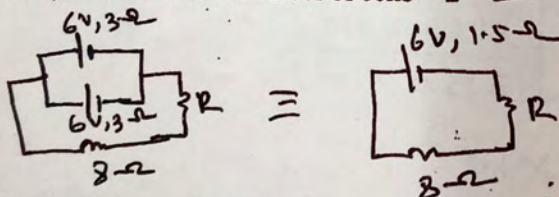 6V, 3Ω
6V, 3Ω
R
8Ω
≡
6V, 1.5Ω
R
8Ω